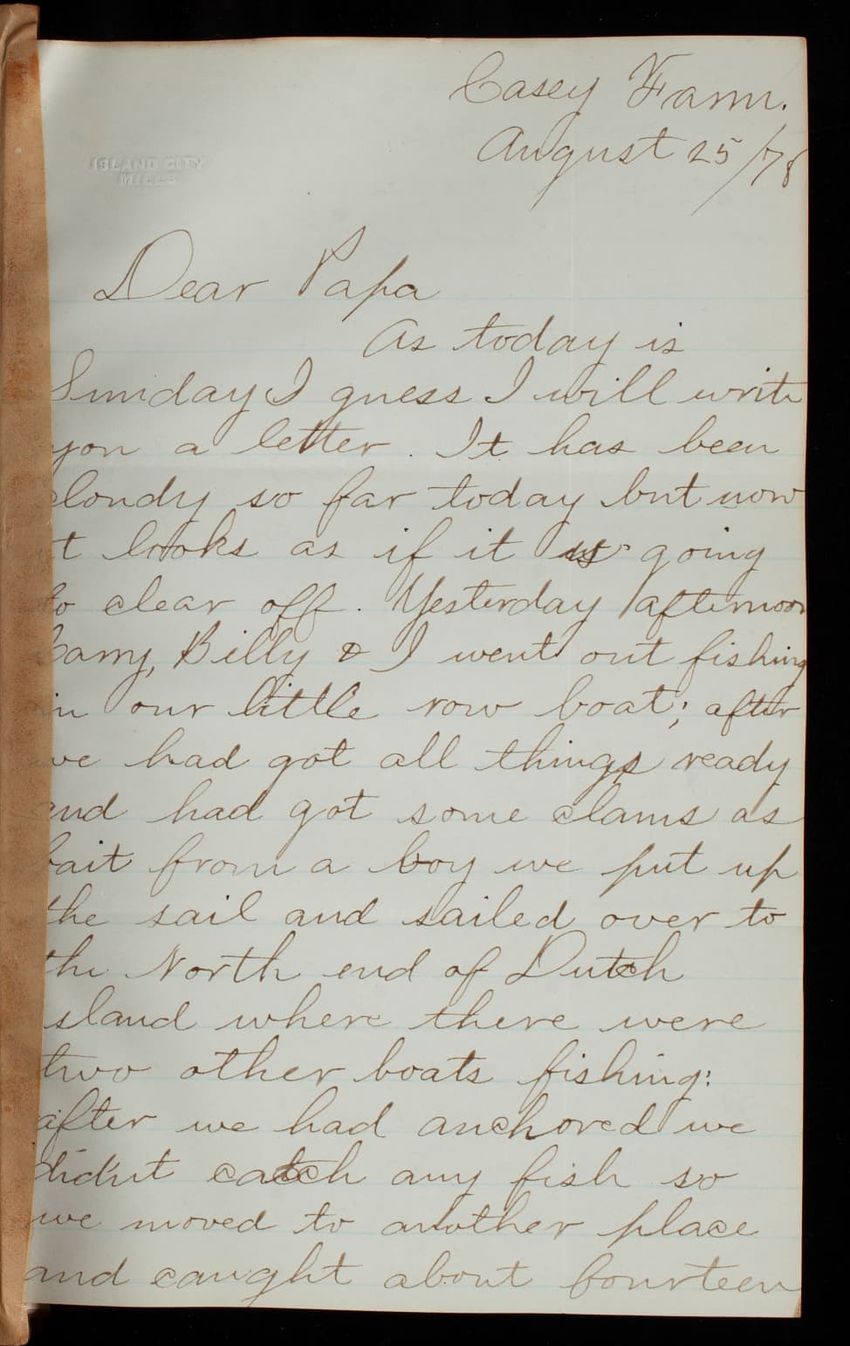 Casey Farm.
August 25/78
ISLAND CITY
MILLS
Dear Papa
As today is
Sunday I guess I will write
you a letter. It has been
cloudy so far today but now
it looks as if it is going
to clear off. Yesterday afternoon
Harry, Billy & I went out fishing
in our little row boat; after
we had got all things ready
and had got some clams as
bait from a boy we put up
the sail and sailed over to
the North end of Dutch
Island where there were
two other boats fishing:
after we had anchored we
didn't catch any fish so
we moved to another place
and caught about fourteen